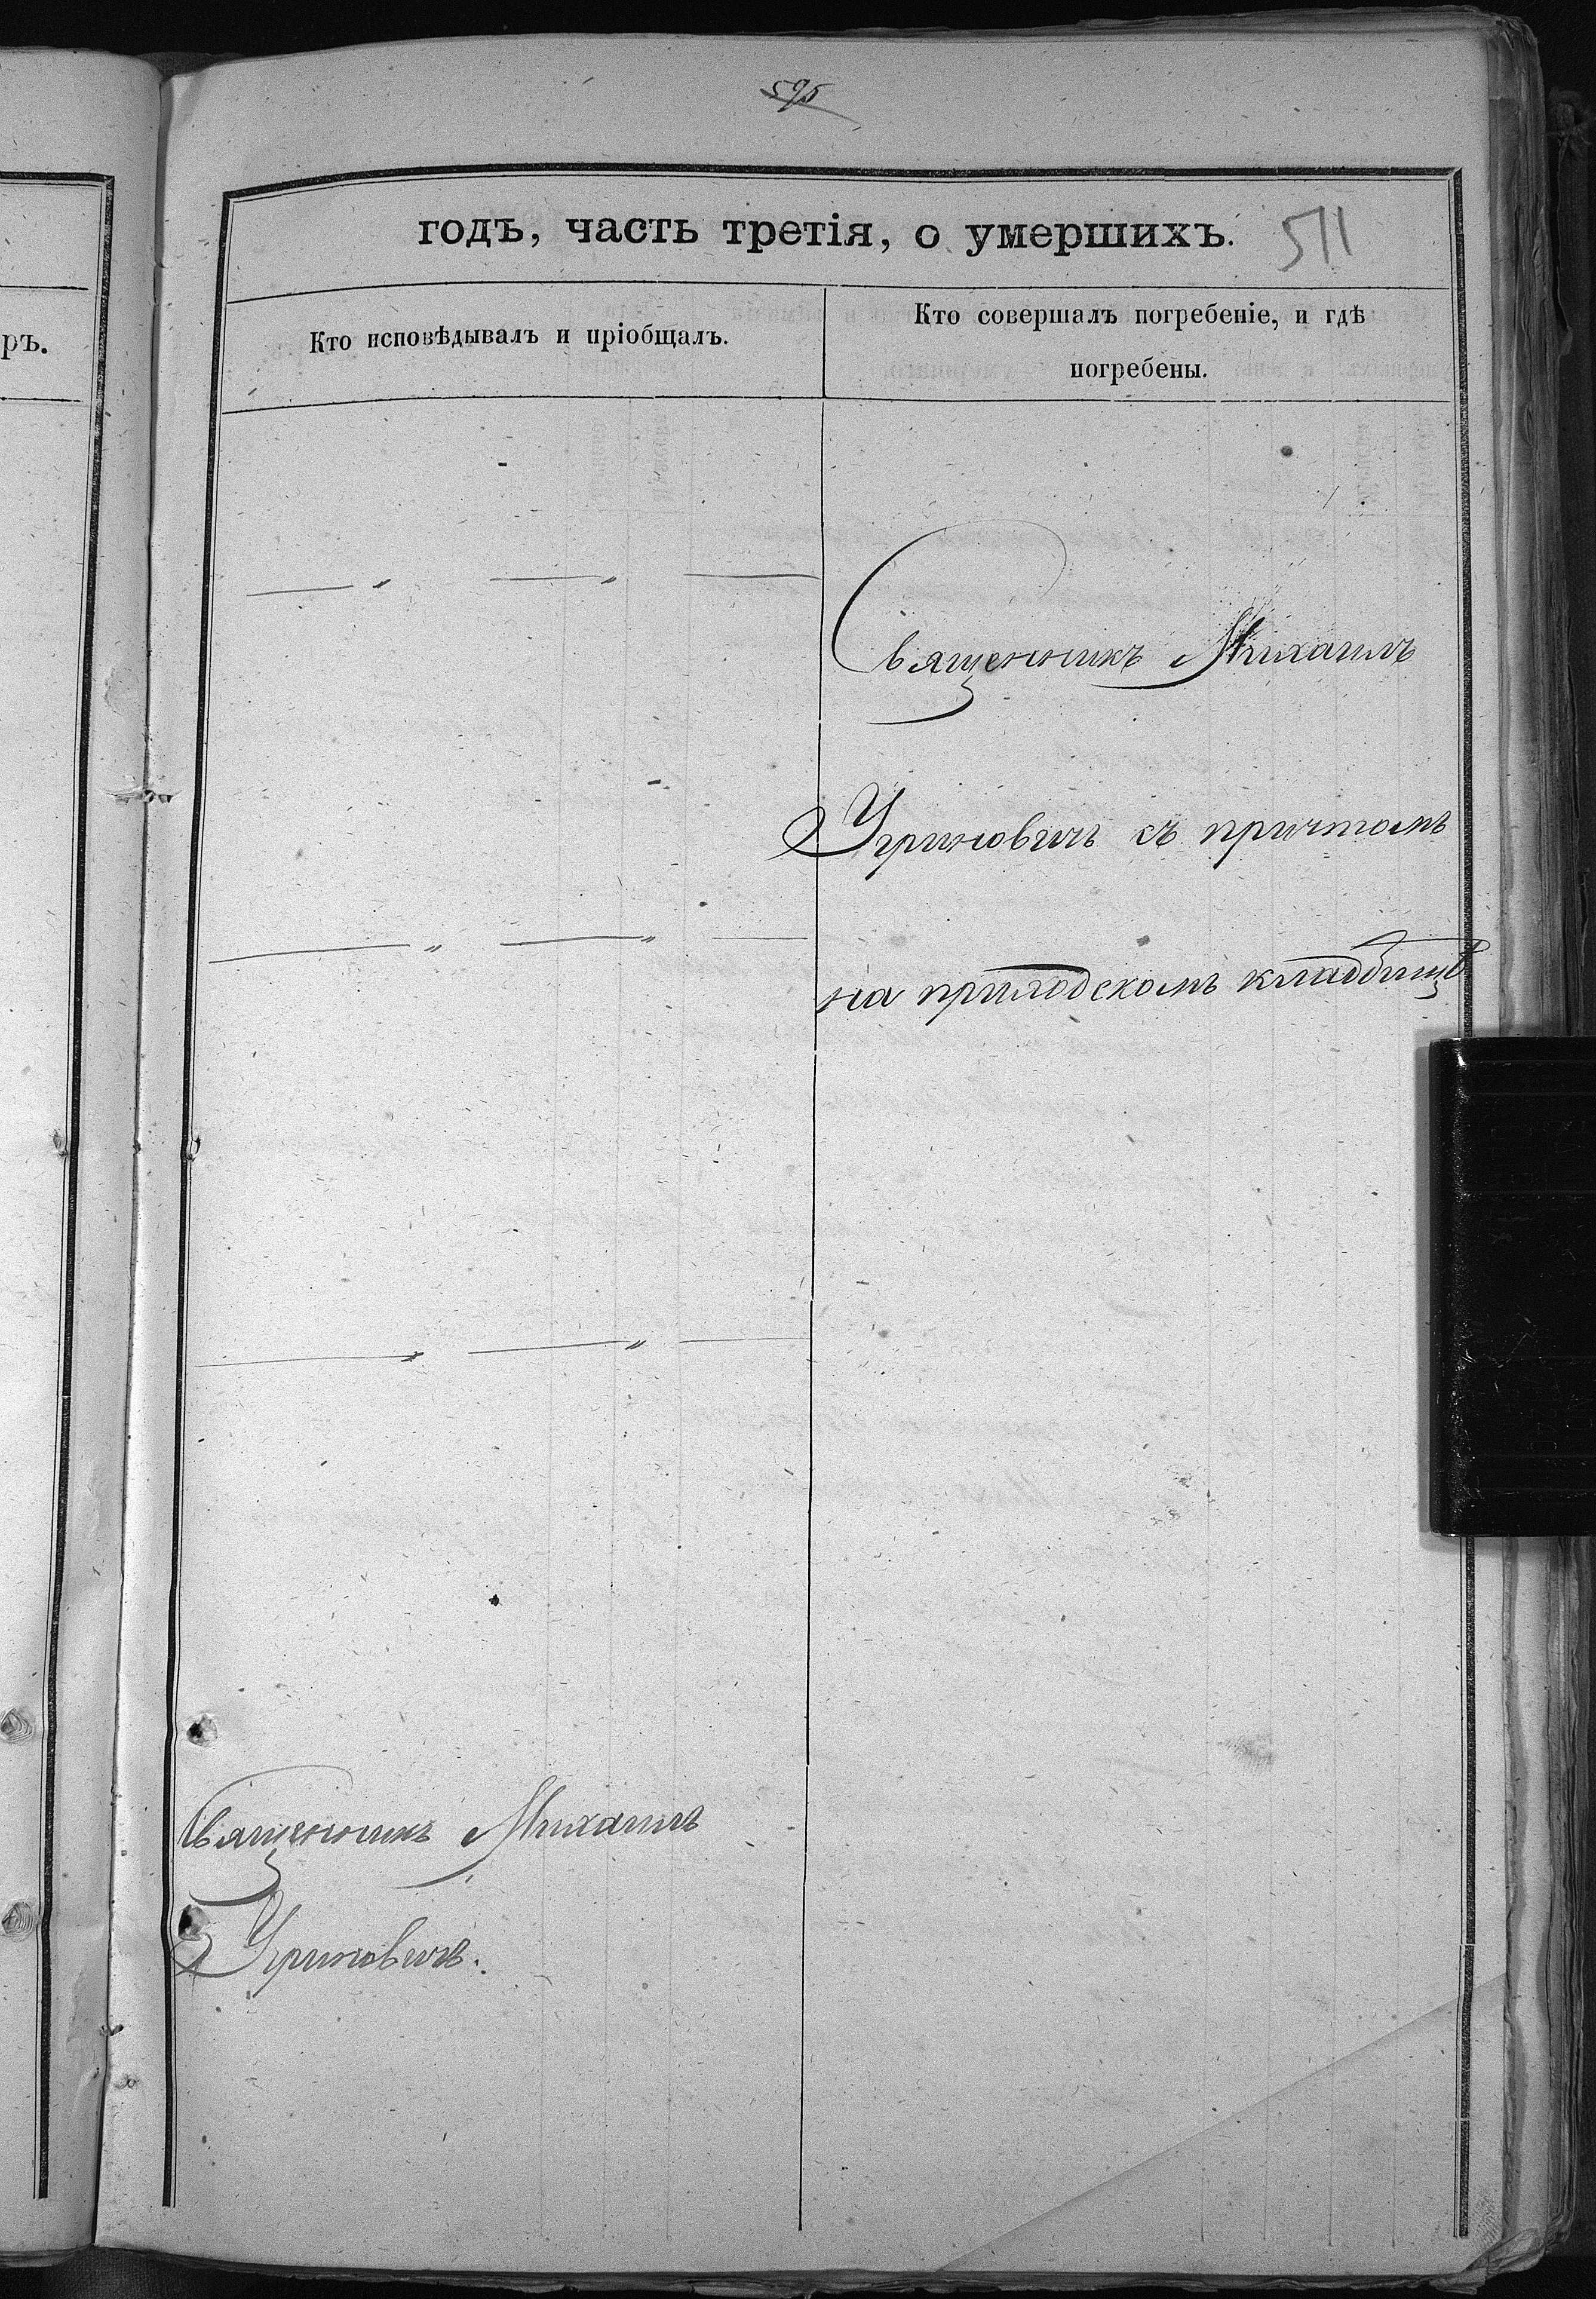 595
годъ, часть третія, о умершихъ. 511
ръ.
Кто исповѣдывалъ и пріобщалъ.
Кто совершалъ погребеніе, и гдѣ
погребены.
— " — " —
Священникъ Михаилъ
Угриновичъ съ причтомъ
— " — " —
на приходскомъ кладбищѣ
— " — " —
Священникъ Михаилъ
Угриновичъ.